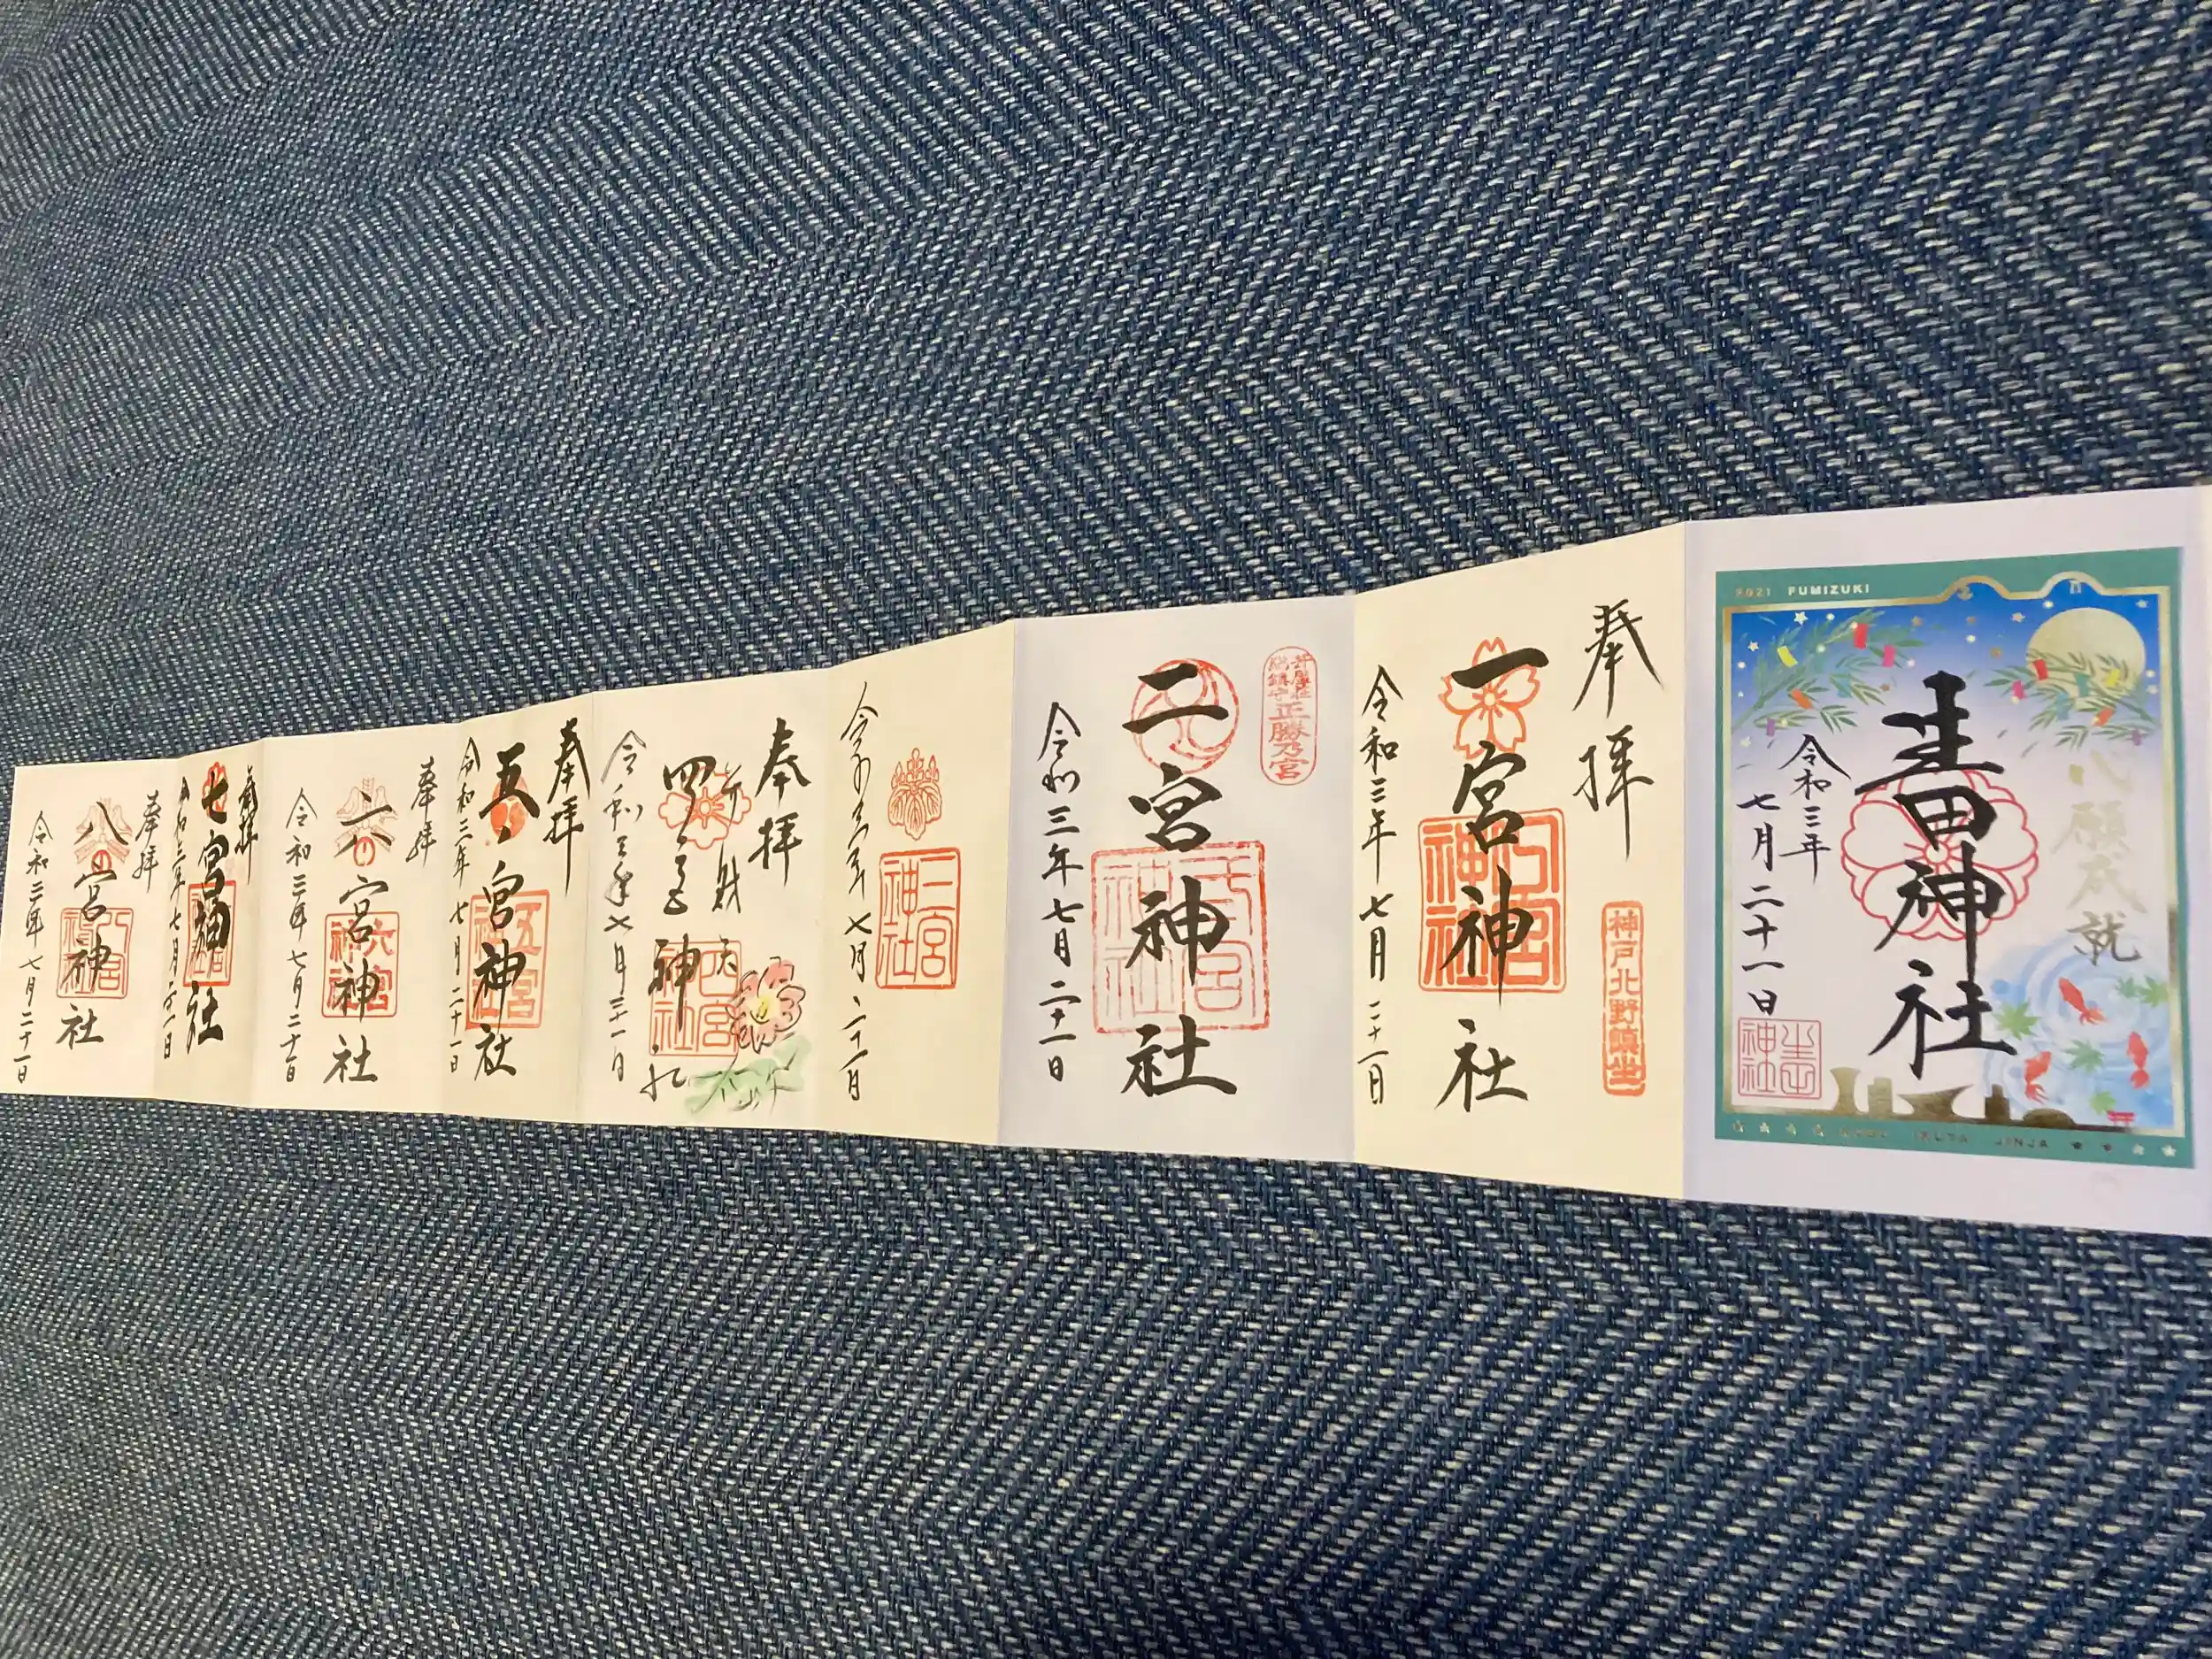 2021 FUMIZUKI
心願成就
生田神社
令和三年
七月二十一日
生田
神社
KOBE IKUTA JINJA
奉拝
一宮神社
一宮
神社
神戸北野鎮坐
令和三年七月二十一日
正勝乃宮
二宮神社
二宮
神社
令和三年七月二十一日
三宮
神社
令和三年七月二十一日
奉拝
弁財天
四宮神社
四宮
神社
令和三年七月二十一日
奉拝
五宮神社
五宮
神社
令和三年七月二十一日
奉拝
六宮神社
六宮
神社
令和三年七月二十一日
奉拝
七宮神社
令和三年七月二十一日
奉拝
八宮神社
八宮
神社
令和三年七月二十一日